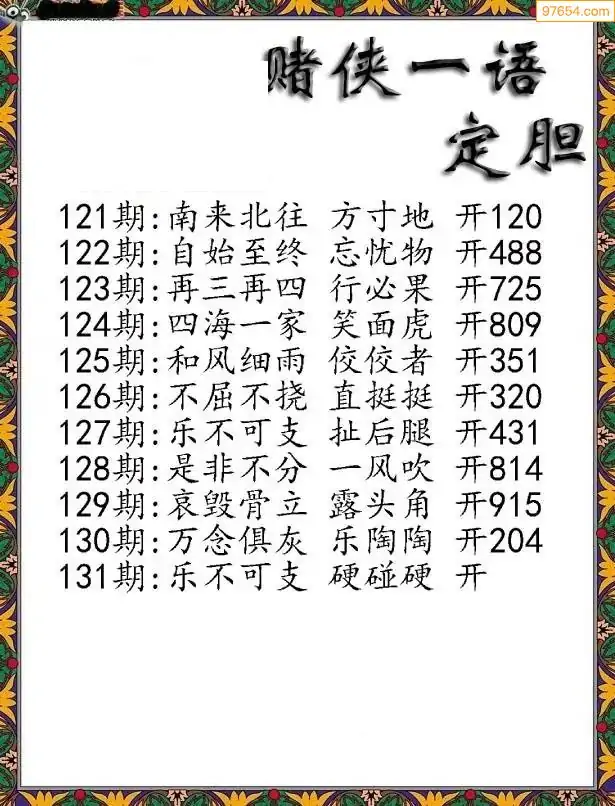 97654.com
赌侠一语
定胆
121期:南来北往 方寸地 开120
122期:自始至终 忘忧物 开488
123期:再三再四 行必果 开725
124期:四海一家 笑面虎 开809
125期:和风细雨 佼佼者 开351
126期:不屈不挠 直挺挺 开320
127期:乐不可支 扯后腿 开431
128期:是非不分 一风吹 开814
129期:哀毁骨立 露头角 开915
130期:万念俱灰 乐陶陶 开204
131期:乐不可支 硬碰硬 开